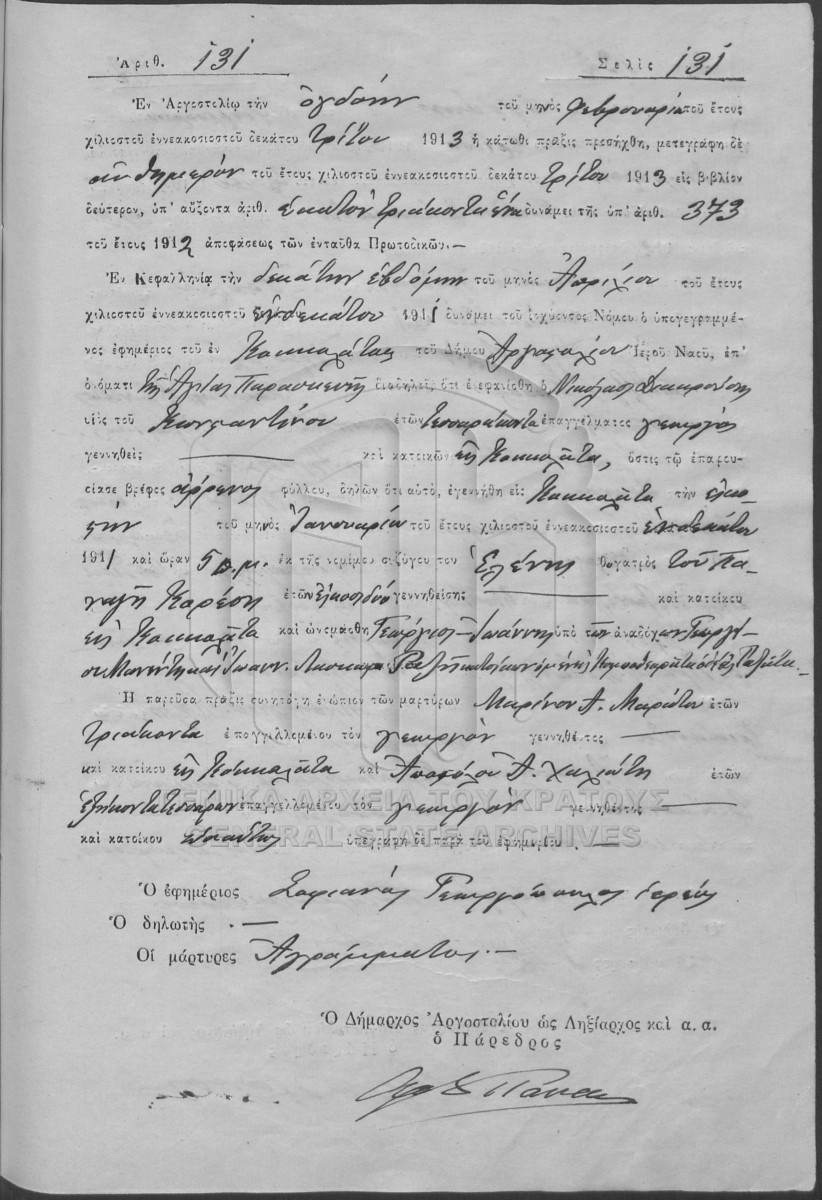 Ἀριθ. 131 Σελὶς 131
Ἐν Ἀργοστολίῳ τὴν ὀγδόην τοῦ μηνὸς Φεβρουαρίου τοῦ ἔτους
χιλιοστοῦ ἐννεακοσιοστοῦ δεκάτου τρίτου 1913 ἡ κάτωθι πρᾶξις προσήχθη, μετεγράφη δὲ
σήμερον τοῦ ἔτους χιλιοστοῦ ἐννεακοσιοστοῦ δεκάτου τρίτου 1913 εἰς βιβλίον
δεύτερον, ὑπ' αὔξοντα ἀριθ. ἑκατὸν τριάκοντα ἕνα δυνάμει τῆς ὑπ' ἀριθ. 373
τοῦ ἔτους 1912 ἀποφάσεως τῶν ἐνταῦθα Πρωτοδικῶν.—
Ἐν Κεφαλληνίᾳ τὴν δεκάτην ἑβδόμην τοῦ μηνὸς Ἀπριλίου τοῦ ἔτους
χιλιοστοῦ ἐννεακοσιοστοῦ ἑνδεκάτου 1911 δυνάμει τοῦ ἰσχύοντος Νόμου ὁ ὑπογεγραμμέ-
νος ἐφημέριος τοῦ ἐν Κοκκολάτα τοῦ Δήμου Ἀργοστολίου Ἱεροῦ Ναοῦ, ἐπ'
ὀνόματι τῆς Ἁγίας Παρασκευῆς διαδηλεῖ, ὅτι ἐνεφανίσθη ὁ Νικόλαος
υἱὸς τοῦ Κωνσταντίνου ἐτῶν τεσσαράκοντα ἐπαγγέλματος γεωργὸς
γεννηθεὶς — καὶ κατοικῶν εἰς Κοκκολᾶτα, ὅστις τῷ ἐπαρου-
σίασε βρέφος ἄρρενος φύλλου, δηλῶν ὅτι αὐτὸ, ἐγεννήθη εἰς Κοκκολᾶτα τὴν εἰκο-
στὴν τοῦ μηνὸς Ἰανουαρίου τοῦ ἔτους χιλιοστοῦ ἐννεακοσιοστοῦ ἑνδεκάτου
1911 καὶ ὥραν 5 π.μ. ἐκ τῆς νομίμου συζύγου του Ἑλένης θυγατρὸς τοῦ Πα-
ναγῆ Καρέση ἐτῶν εἴκοσι δύο γεννηθείσης — καὶ κατοίκου
εἰς Κοκκολᾶτα καὶ ὠνομάσθη Γεώργιος-Ἰωάννης ὑπὸ τῶν ἀναδόχων Γεωργί-
ου
Ἡ παροῦσα πρᾶξις συνετάγη ἐνώπιον τῶν μαρτύρων Μαρίνου Α. Μαράτου ἐτῶν
τριάκοντα ἐπαγγελλομένου τὸν γεωργὸν γεννηθέντος —
καὶ κατοίκου εἰς Κοκκολᾶτα καὶ Ἀποστόλου Α. Χαλιώτη ἐτῶν
ἑξήκοντα τεσσάρων ἐπαγγελλομένου τὸν γεωργὸν γεννηθέντος —
καὶ κατοίκου ὑπεγράφη δὲ παρὰ τοῦ ἐφημερίου. —
ΓΕΝΙΚΑ ΑΡΧΕΙΑ ΤΟΥ ΚΡΑΤΟΥΣ
GENERAL STATE ARCHIVES
Ὁ ἐφημέριος Σοφιανὸς Γεωργόπουλος ἱερεὺς
Ὁ δηλωτὴς . —
Οἱ μάρτυρες Ἀγράμματοι. —
Ὁ Δήμαρχος Ἀργοστολίου ὡς Ληξίαρχος καὶ α. α.
ὁ Πάρεδρος